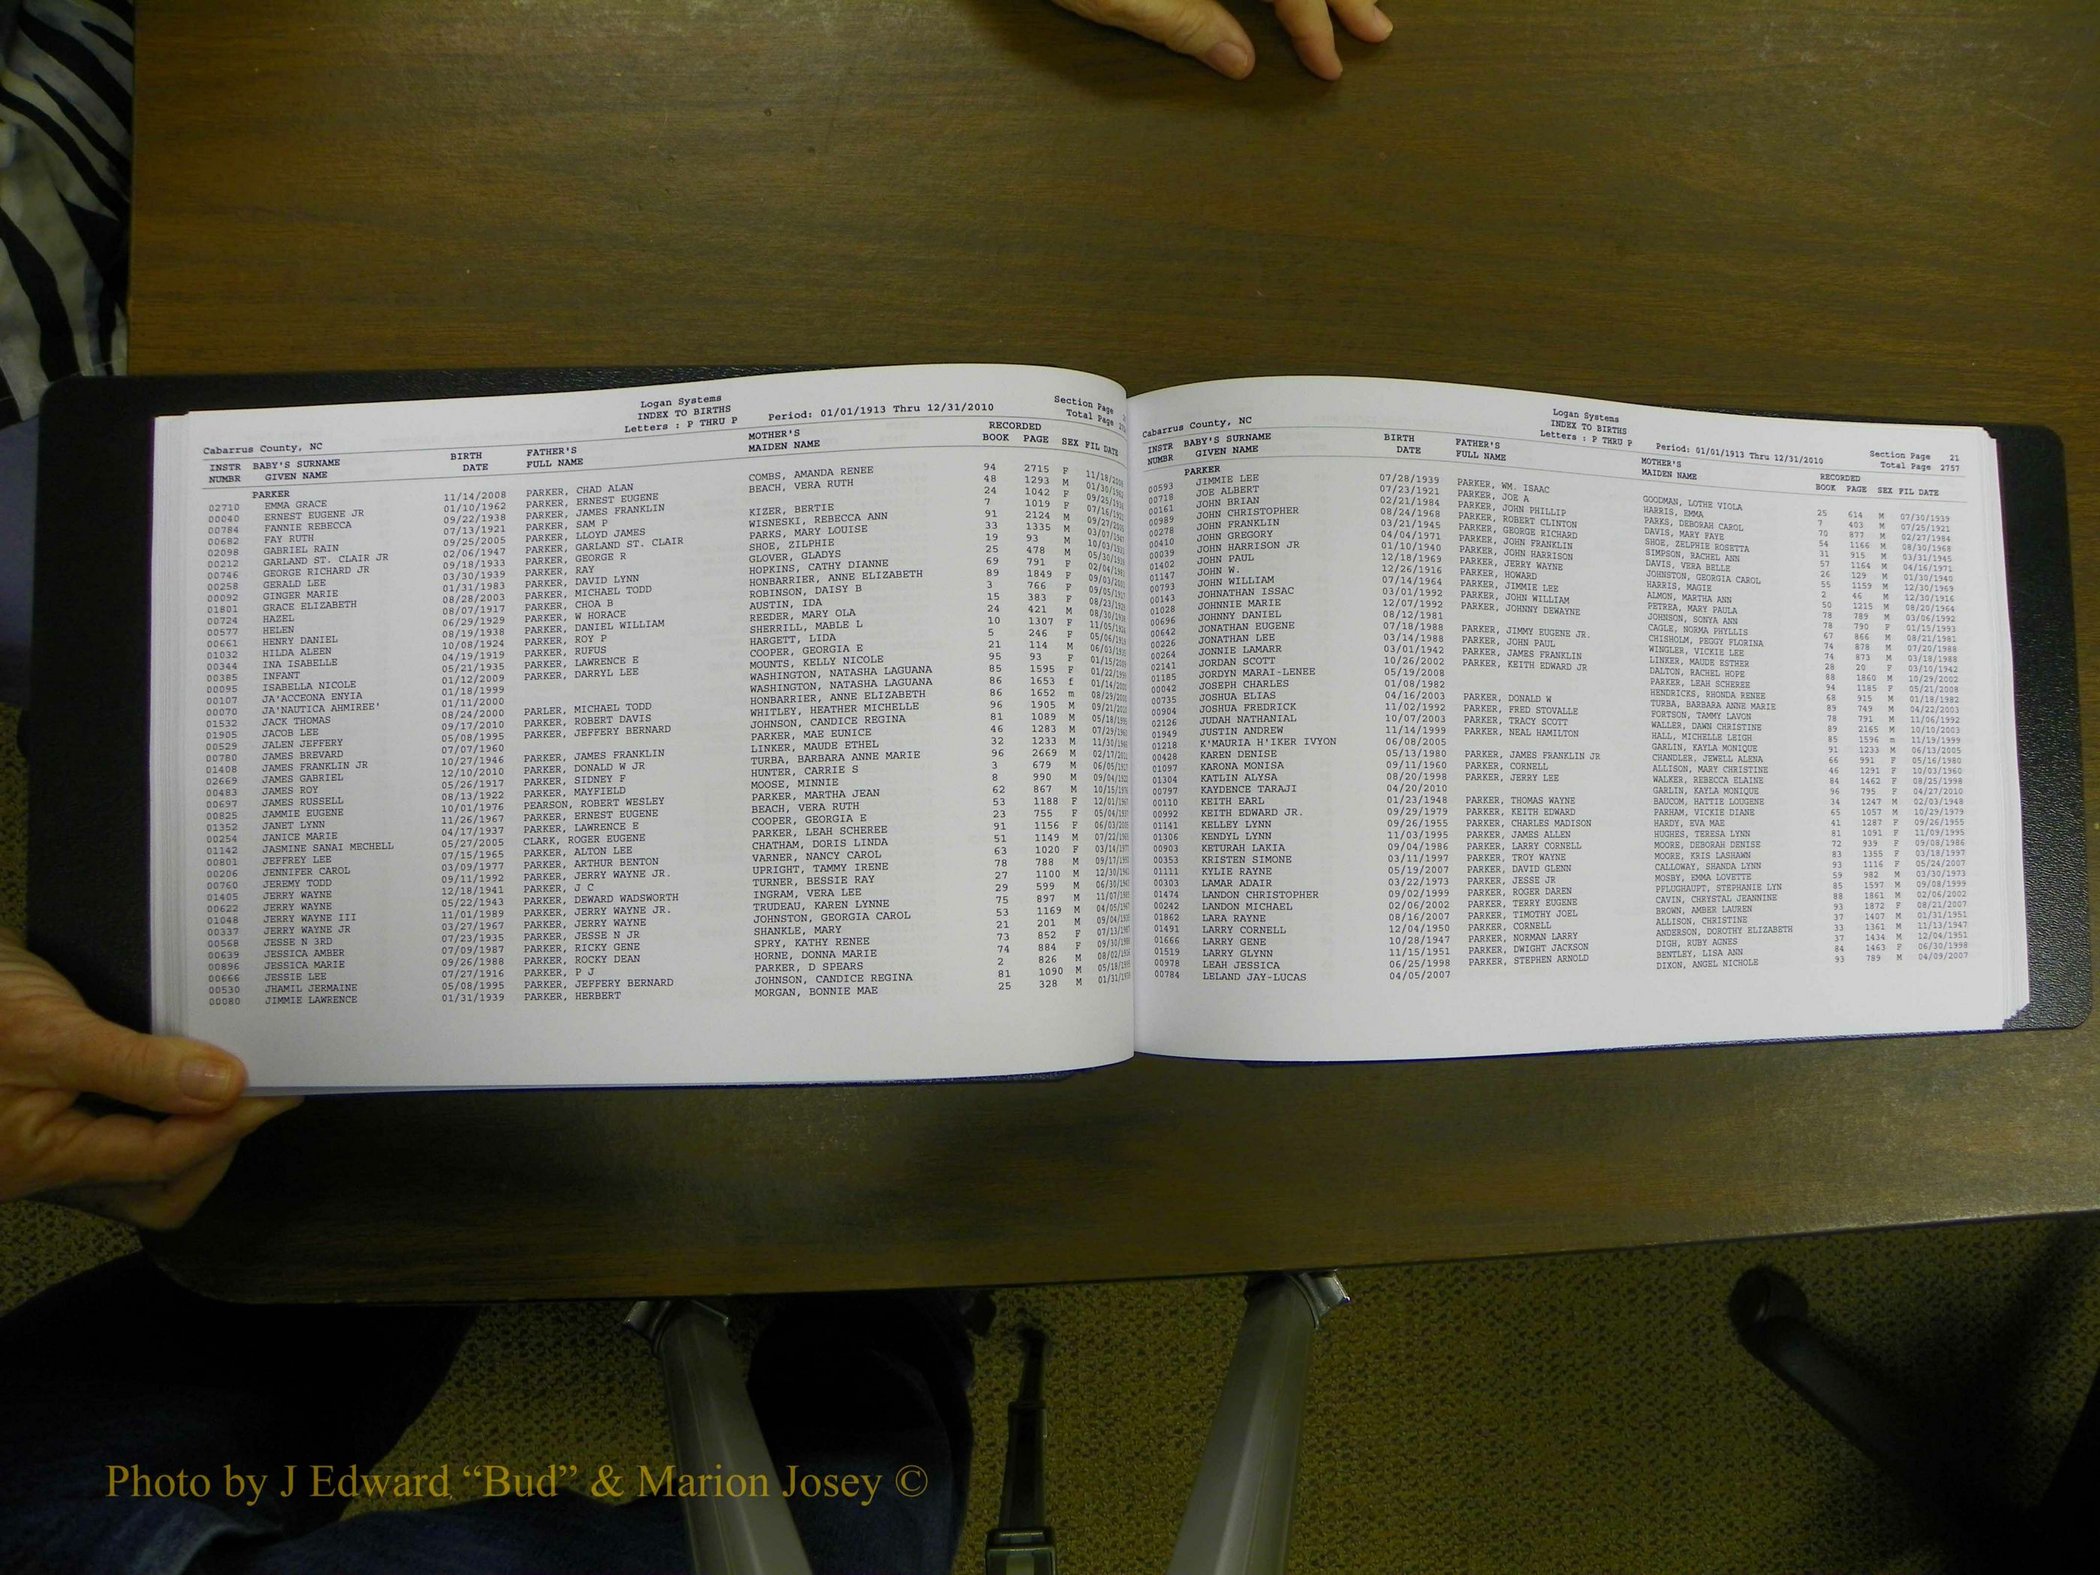 Logan Systems
INDEX TO BIRTHS
Letters : P THRU P
Period: 01/01/1913 Thru 12/31/2010
Section Page
Total Page
Cabarrus County, NC
INSTR BABY'S SURNAME BIRTH FATHER'S MOTHER'S RECORDED
NUMBR GIVEN NAME DATE FULL NAME MAIDEN NAME BOOK PAGE SEX FIL DATE
PARKER
02710 EMMA GRACE 11/14/2008 PARKER, CHAD ALAN COMBS, AMANDA RENEE 94 2715 F
00040 ERNEST EUGENE JR 01/10/1962 PARKER, ERNEST EUGENE BEACH, VERA RUTH 48 1293 M
00784 FANNIE REBECCA 09/22/1938 PARKER, JAMES FRANKLIN 24 1042 F
00682 FAY RUTH 07/13/1921 PARKER, SAM P KIZER, BERTIE 7 1019 F
02098 GABRIEL RAIN 09/25/2005 PARKER, LLOYD JAMES WISNESKI, REBECCA ANN 91 2124 M
00212 GARLAND ST. CLAIR JR 02/06/1947 PARKER, GARLAND ST. CLAIR PARKS, MARY LOUISE 33 1335 M
00746 GEORGE RICHARD JR 09/18/1933 PARKER, GEORGE R SHOE, ZILPHIE 19 93 M
00258 GERALD LEE 03/30/1939 PARKER, RAY GLOVER, GLADYS 25 478 M
00092 GINGER MARIE 01/31/1983 PARKER, DAVID LYNN HOPKINS, CATHY DIANNE 69 791 F
01801 GRACE ELIZABETH 08/28/2003 PARKER, MICHAEL TODD HONBARRIER, ANNE ELIZABETH 89 1849 F
00724 HAZEL 08/07/1917 PARKER, CHOA B ROBINSON, DAISY B 3 766 F
00577 HELEN 06/29/1929 PARKER, W HORACE AUSTIN, IDA 15 383 F
00661 HENRY DANIEL 08/19/1938 PARKER, DANIEL WILLIAM REEDER, MARY OLA 24 421 M
01032 HILDA ALEEN 10/08/1924 PARKER, ROY P SHERRILL, MABLE L 10 1307 F
00344 INA ISABELLE 04/19/1919 PARKER, RUFUS HARGETT, LIDA 5 246 F
00385 INFANT 05/21/1935 PARKER, LAWRENCE E COOPER, GEORGIA E 21 114 M
00095 ISABELLA NICOLE 01/12/2009 PARKER, DARRYL LEE MOUNTS, KELLY NICOLE 95 93 F
00107 JA'ACCEONA ENYIA 01/18/1999 WASHINGTON, NATASHA LAGUANA 85 1595 F
00070 JA'NAUTICA AHMIREE' 01/11/2000 WASHINGTON, NATASHA LAGUANA 86 1653 f
01532 JACK THOMAS 08/24/2000 PARLER, MICHAEL TODD HONBARRIER, ANNE ELIZABETH 86 1652 m
01905 JACOB LEE 09/17/2010 PARKER, ROBERT DAVIS WHITLEY, HEATHER MICHELLE 96 1905 M
00529 JALEN JEFFERY 05/08/1995 PARKER, JEFFERY BERNARD JOHNSON, CANDICE REGINA 81 1089 M
00780 JAMES BREVARD 07/07/1960 PARKER, MAE EUNICE 46 1283 M
01408 JAMES FRANKLIN JR 10/27/1946 PARKER, JAMES FRANKLIN LINKER, MAUDE ETHEL 32 1233 M
02669 JAMES GABRIEL 12/10/2010 PARKER, DONALD W JR TURBA, BARBARA ANNE MARIE 96 2669 M
00483 JAMES ROY 05/26/1917 PARKER, SIDNEY F HUNTER, CARRIE S 3 679 M
00697 JAMES RUSSELL 08/13/1922 PARKER, MAYFIELD MOOSE, MINNIE 8 990 M
00825 JAMMIE EUGENE 10/01/1976 PEARSON, ROBERT WESLEY PARKER, MARTHA JEAN 62 867 M
01352 JANET LYNN 11/26/1967 PARKER, ERNEST EUGENE BEACH, VERA RUTH 53 1188 F
00254 JANICE MARIE 04/17/1937 PARKER, LAWRENCE E COOPER, GEORGIA E 23 755 F
01142 JASMINE SANAI MECHELL 05/27/2005 CLARK, ROGER EUGENE PARKER, LEAH SCHEREE 91 1156 F
00801 JEFFREY LEE 07/15/1965 PARKER, ALTON LEE CHATHAM, DORIS LINDA 51 1149 M
00206 JENNIFER CAROL 03/09/1977 PARKER, ARTHUR BENTON VARNER, NANCY CAROL 63 1020 F
00760 JEREMY TODD 09/11/1992 PARKER, JERRY WAYNE JR. UPRIGHT, TAMMY IRENE 78 788 M
01405 JERRY WAYNE 12/18/1941 PARKER, J C TURNER, BESSIE RAY 27 1100 M
00622 JERRY WAYNE 05/22/1943 PARKER, DEWARD WADSWORTH INGRAM, VERA LEE 29 599 M
01048 JERRY WAYNE III 11/01/1989 PARKER, JERRY WAYNE JR. TRUDEAU, KAREN LYNNE 75 897 M
00337 JERRY WAYNE JR 03/27/1967 PARKER, JERRY WAYNE JOHNSTON, GEORGIA CAROL 53 1169 M
00568 JESSE N 3RD 07/23/1935 PARKER, JESSE N JR SHANKLE, MARY 21 201 M
00639 JESSICA AMBER 07/09/1987 PARKER, RICKY GENE SPRY, KATHY RENEE 73 852 F
00896 JESSICA MARIE 09/26/1988 PARKER, ROCKY DEAN HORNE, DONNA MARIE 74 884 F
00666 JESSIE LEE 07/27/1916 PARKER, P J PARKER, D SPEARS 2 826 M
00530 JHAMIL JERMAINE 05/08/1995 PARKER, JEFFERY BERNARD JOHNSON, CANDICE REGINA 81 1090 M
00080 JIMMIE LAWRENCE 01/31/1939 PARKER, HERBERT MORGAN, BONNIE MAE 25 328 M
Logan Systems
INDEX TO BIRTHS
Letters : P THRU P
Period: 01/01/1913 Thru 12/31/2010
Section Page 21
Total Page 2757
Cabarrus County, NC
INSTR BABY'S SURNAME BIRTH FATHER'S MOTHER'S RECORDED
NUMBR GIVEN NAME DATE FULL NAME MAIDEN NAME BOOK PAGE SEX FIL DATE
PARKER
00593 JIMMIE LEE 07/28/1939 PARKER, WM. ISAAC GOODMAN, LOTHE VIOLA 25 614 M 07/30/1939
00718 JOE ALBERT 07/23/1921 PARKER, JOE A HARRIS, EMMA 7 403 M 07/25/1921
00161 JOHN BRIAN 02/21/1984 PARKER, JOHN PHILLIP PARKS, DEBORAH CAROL 70 877 M 02/27/1984
00989 JOHN CHRISTOPHER 08/24/1968 PARKER, ROBERT CLINTON DAVIS, MARY FAYE 54 1166 M 08/30/1968
00278 JOHN FRANKLIN 03/21/1945 PARKER, GEORGE RICHARD SHOE, ZELPHIE ROSETTA 31 915 M 03/31/1945
00410 JOHN GREGORY 04/04/1971 PARKER, JOHN FRANKLIN SIMPSON, RACHEL ANN 57 1164 M 04/16/1971
00039 JOHN HARRISON JR 01/10/1940 PARKER, JOHN HARRISON DAVIS, VERA BELLE 26 129 M 01/30/1940
01402 JOHN PAUL 12/18/1969 PARKER, JERRY WAYNE JOHNSTON, GEORGIA CAROL 55 1159 M 12/30/1969
01147 JOHN W. 12/26/1916 PARKER, HOWARD HARRIS, MAGIE 2 46 M 12/30/1916
00793 JOHN WILLIAM 07/14/1964 PARKER, JIMMIE LEE ALMON, MARTHA ANN 50 1215 M 08/20/1964
00143 JOHNATHAN ISSAC 03/01/1992 PARKER, JOHN WILLIAM PETREA, MARY PAULA 78 789 M 03/06/1992
01028 JOHNNIE MARIE 12/07/1992 PARKER, JOHNNY DEWAYNE JOHNSON, SONYA ANN 78 790 F 01/15/1993
00696 JOHNNY DANIEL 08/12/1981 CAGLE, NORMA PHYLLIS 67 866 M 08/21/1981
00642 JONATHAN EUGENE 07/18/1988 PARKER, JIMMY EUGENE JR. CHISHOLM, PEGGY FLORINA 74 878 M 07/20/1988
00226 JONATHAN LEE 03/14/1988 PARKER, JOHN PAUL WINGLER, VICKIE LEE 74 873 M 03/18/1988
00264 JONNIE LAMARR 03/01/1942 PARKER, JAMES FRANKLIN LINKER, MAUDE ESTHER 28 20 F 03/10/1942
02141 JORDAN SCOTT 10/26/2002 PARKER, KEITH EDWARD JR DALTON, RACHEL HOPE 88 1860 M 10/29/2002
01185 JORDYN MARAI-LENEE 05/19/2008 PARKER, LEAH SCHEREE 94 1185 F 05/21/2008
00042 JOSEPH CHARLES 01/08/1982 HENDRICKS, RHONDA RENEE 68 915 M 01/18/1982
00735 JOSHUA ELIAS 04/16/2003 PARKER, DONALD W TURBA, BARBARA ANNE MARIE 89 749 M 04/22/2003
00904 JOSHUA FREDRICK 11/02/1992 PARKER, FRED STOVALLE FORTSON, TAMMY LAVON 78 791 M 11/06/1992
02126 JUDAH NATHANIAL 10/07/2003 PARKER, TRACY SCOTT WALLER, DAWN CHRISTINE 89 2165 M 10/10/2003
01949 JUSTIN ANDREW 11/14/1999 PARKER, NEAL HAMILTON HALL, MICHELLE LEIGH 85 1596 m 11/19/1999
01218 K'MAURIA H'IKER IVYON 06/08/2005 GARLIN, KAYLA MONIQUE 91 1233 M 06/13/2005
00428 KAREN DENISE 05/13/1980 PARKER, JAMES FRANKLIN JR CHANDLER, JEWELL ALENA 66 991 F 05/16/1980
01097 KARONA MONISA 09/11/1960 PARKER, CORNELL ALLISON, MARY CHRISTINE 46 1291 F 10/03/1960
01304 KATLIN ALYSA 08/20/1998 PARKER, JERRY LEE WALKER, REBECCA ELAINE 84 1462 F 08/25/1998
00797 KAYDENCE TARAJI 04/20/2010 GARLIN, KAYLA MONIQUE 96 795 F 04/27/2010
00110 KEITH EARL 01/23/1948 PARKER, THOMAS WAYNE BAUCOM, HATTIE LOUGENE 34 1247 M 02/03/1948
00992 KEITH EDWARD JR. 09/29/1979 PARKER, KEITH EDWARD PARHAM, VICKIE DIANE 65 1057 M 10/29/1979
01141 KELLEY LYNN 09/26/1955 PARKER, CHARLES MADISON HARDY, EVA MAE 41 1287 F 09/26/1955
01306 KENDYL LYNN 11/03/1995 PARKER, JAMES ALLEN HUGHES, TERESA LYNN 81 1091 F 11/09/1995
00903 KETURAH LAKIA 09/04/1986 PARKER, LARRY CORNELL MOORE, DEBORAH DENISE 72 939 F 09/08/1986
00353 KRISTEN SIMONE 03/11/1997 PARKER, TROY WAYNE MOORE, KRIS LASHAWN 83 1355 F 03/18/1997
01111 KYLIE RAYNE 05/19/2007 PARKER, DAVID GLENN CALLOWAY, SHANDA LYNN 93 1116 F 05/24/2007
00303 LAMAR ADAIR 03/22/1973 PARKER, JESSE JR MOSBY, EMMA LOVETTE 59 982 M 03/30/1973
01474 LANDON CHRISTOPHER 09/02/1999 PARKER, ROGER DAREN PFLUGHAUPT, STEPHANIE LYN 85 1597 M 09/08/1999
00242 LANDON MICHAEL 02/06/2002 PARKER, TERRY EUGENE CAVIN, CHRYSTAL JEANNINE 88 1861 M 02/06/2002
01862 LARA RAYNE 08/16/2007 PARKER, TIMOTHY JOEL BROWN, AMBER LAUREN 93 1872 F 08/21/2007
01491 LARRY CORNELL 12/04/1950 PARKER, CORNELL ALLISON, CHRISTINE 37 1407 M 01/31/1951
01666 LARRY GENE 10/28/1947 PARKER, NORMAN LARRY ANDERSON, DOROTHY ELIZABETH 33 1361 M 11/13/1947
01519 LARRY GLYNN 11/15/1951 PARKER, DWIGHT JACKSON DIGH, RUBY AGNES 37 1434 M 12/04/1951
00978 LEAH JESSICA 06/25/1998 PARKER, STEPHEN ARNOLD BENTLEY, LISA ANN 84 1463 F 06/30/1998
00784 LELAND JAY-LUCAS 04/05/2007 DIXON, ANGEL NICHOLE 93 789 M 04/09/2007
Photo by J Edward “Bud” & Marion Josey ©